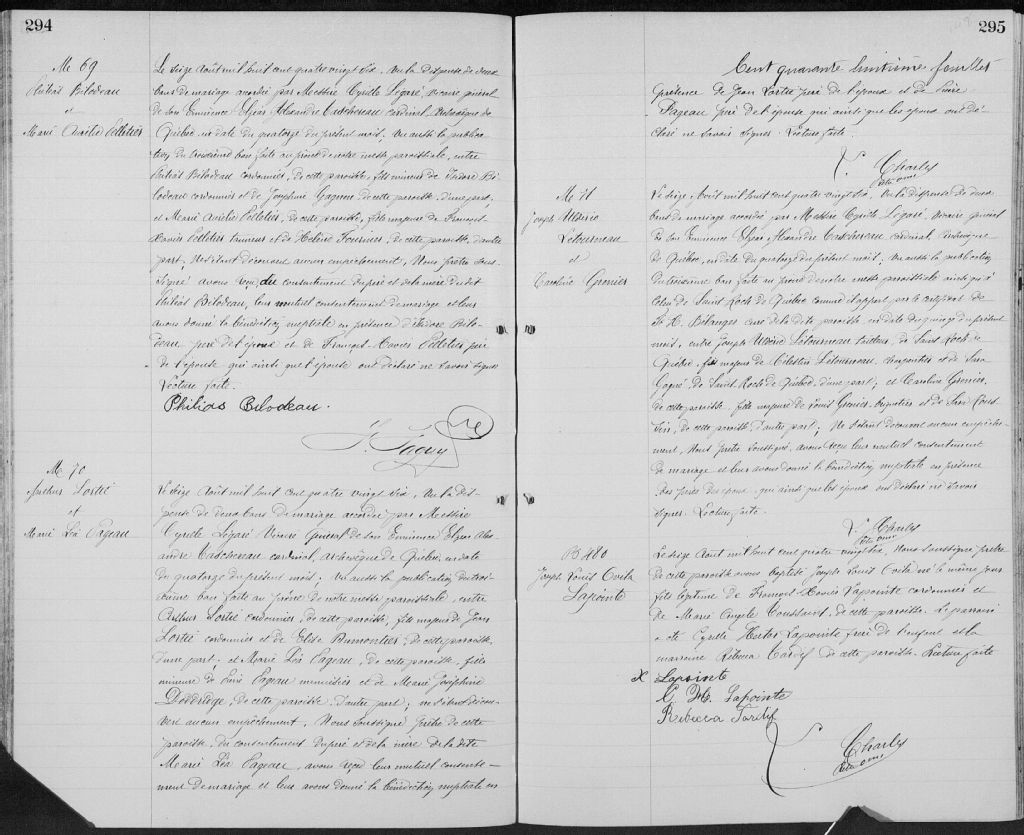 294
M 69
Philias Bilodeau
et
Marie Aurélie Pelletier
Le seize Août mil huit cent quatre vingt six. Vu la dispense de deux
bans de mariage accordée par Messire Cyrille Légaré, Vicaire général
de Son Eminence Elzear Alexandre Taschereau cardinal, Archevêque de
Québec en date du quatorze du présent mois; Vu aussi la publica-
tion du troisième ban faite au prône de notre messe paroissiale, entre
Philias Bilodeau cordonnier, de cette paroisse, fils mineur de Isidore Bi-
lodeau cordonnier et de Joséphine Gagnon de cette paroisse, d'une part;
et Marie Aurélie Pelletier, de cette paroisse, fille majeure de François-
Xavier Pelletier tanneur et de Hélène Fournier, de cette paroisse, d'autre
part; Ne s'étant découvert aucun empêchement, Nous prêtre sous-
signé avons reçu du consentement du père et de la mère du dit
Philias Bilodeau, leur mutuel consentement de mariage et leur
avons donné la bénédiction nuptiale en présence d'Isidore Bilo-
deau père de l'époux et de François-Xavier Pelletier père
de l'épouse qui ainsi que l'épouse ont déclaré ne savoir signer
Lecture faite.
Philias Bilodeau.
M 70
Arthur Lortie
et
Marie Léa Pageau
Le seize Août mil huit cent quatre vingt six, Vu la dis-
pense de deux bans de mariage accordée par Messire
Cyrille Légaré Vicaire Général de Son Eminence Elzear Alex-
andre Taschereau cardinal, archevêque de Québec en date
du quatorze du présent mois; Vu aussi la publication du troi-
sième ban faite au prône de notre messe paroissiale, entre
Arthur Lortie cordonnier, de cette paroisse, fils majeur de Jean
Lortie cordonnier et de Elise Dumontier, de cette paroisse,
d'une part; et Marie Léa Pageau, de cette paroisse, fille
mineure de Pageau menuisier et de Marie Joséphine
Doddridge, de cette paroisse d'autre part; ne s'étant décou-
vert aucun empêchement, Nous soussigné prêtre de cette
paroisse, du consentement du père et de la mère de la dite
Marie Léa Pageau, avons reçu leur mutuel consente-
ment de mariage et leur avons donné la bénédiction nuptiale en
295
Cent quarante huitième feuillet
présence de Jean Lortie père de l'époux et de
Pageau père de l'épouse qui ainsi que les époux ont dé-
claré ne savoir signer. Lecture faite.
Charles
M 71
Joseph
Letourneau
et
Caroline Grenier
Le seize Août mil huit cent quatre vingt six, Vu la dispense de deux
bans de mariage accordée par Messire Cyrille Légaré, Vicaire général
de Son Eminence Elzear Alexandre Taschereau cardinal, archevêque
de Québec, en date du quatorze du présent mois. Vu aussi la publication
du troisième ban faite au prône de notre messe paroissiale ainsi qu'à
celui de Saint Roch de Québec comme il appert par le certificat de
F. H. Bélanger curé de la dite paroisse, en date du quinze du présent
mois, entre Joseph Letourneau tailleur, de Saint Roch de
Québec, fils majeur de Célestin Letourneau, charpentier et de Sara
Gagné, de Saint Roch de Québec, d'une part; et Caroline Grenier,
de cette paroisse, fille majeure de Louis Grenier, et de
de cette paroisse d'autre part; Ne s'étant découvert aucun empêche-
ment, Nous prêtre soussigné, avons reçu leur mutuel consentement
de mariage et leur avons donné la bénédiction nuptiale en présence
des pères des époux, qui ainsi que les époux ont déclaré ne savoir
signer. Lecture faite.
Charles
B 480
Joseph Louis
Lapointe
Le seize Août mil huit cent quatre vingt six, Nous soussigné prêtre
de cette paroisse avons baptisé Joseph Louis né le même jour
fils légitime de François-Xavier Lapointe cordonnier et
de Marie Angèle Toussaint, de cette paroisse. Le parrain
a été Cyrille Hector Lapointe frère de l'enfant et la
marraine Rébecca Tardif de cette paroisse. Lecture faite
X Lapointe
C. H. Lapointe
Rébecca Tardif
Charles